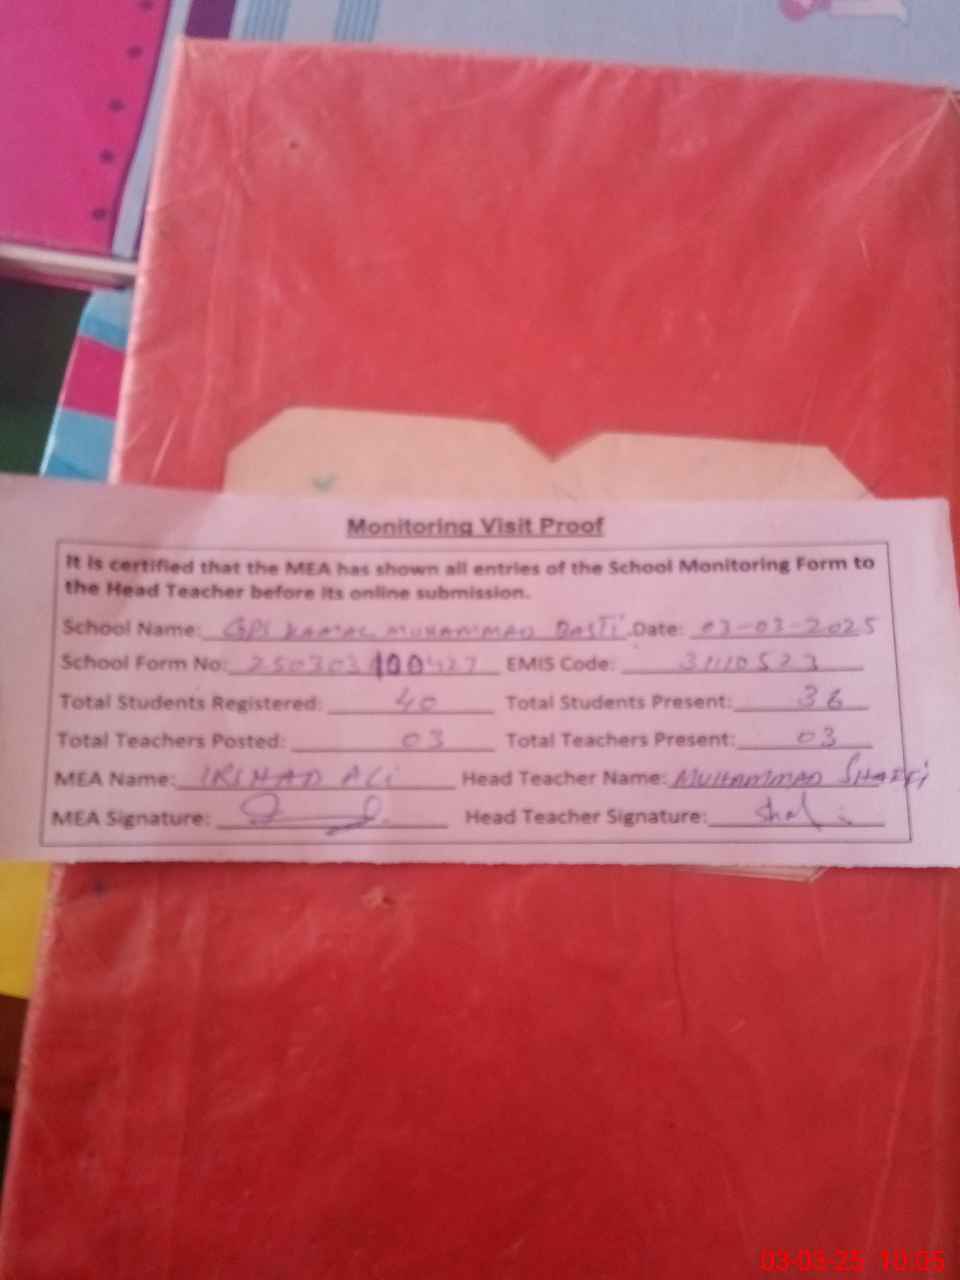 Monitoring Visit Proof
It is certified that the MEA has shown all entries of the School Monitoring Form to
the Head Teacher before its online submission.
School Name: GPS KAMAL MUHAMMAD BASTi Date: 03-03-2025
School Form No: 250303100427 EMIS Code: 31110523
Total Students Registered: 40 Total Students Present: 36
Total Teachers Posted: 03 Total Teachers Present: 03
MEA Name: IRSHAD ALi Head Teacher Name: MUHAMMAD SHAFFi
MEA Signature: Head Teacher Signature:
03-03-25 10:05